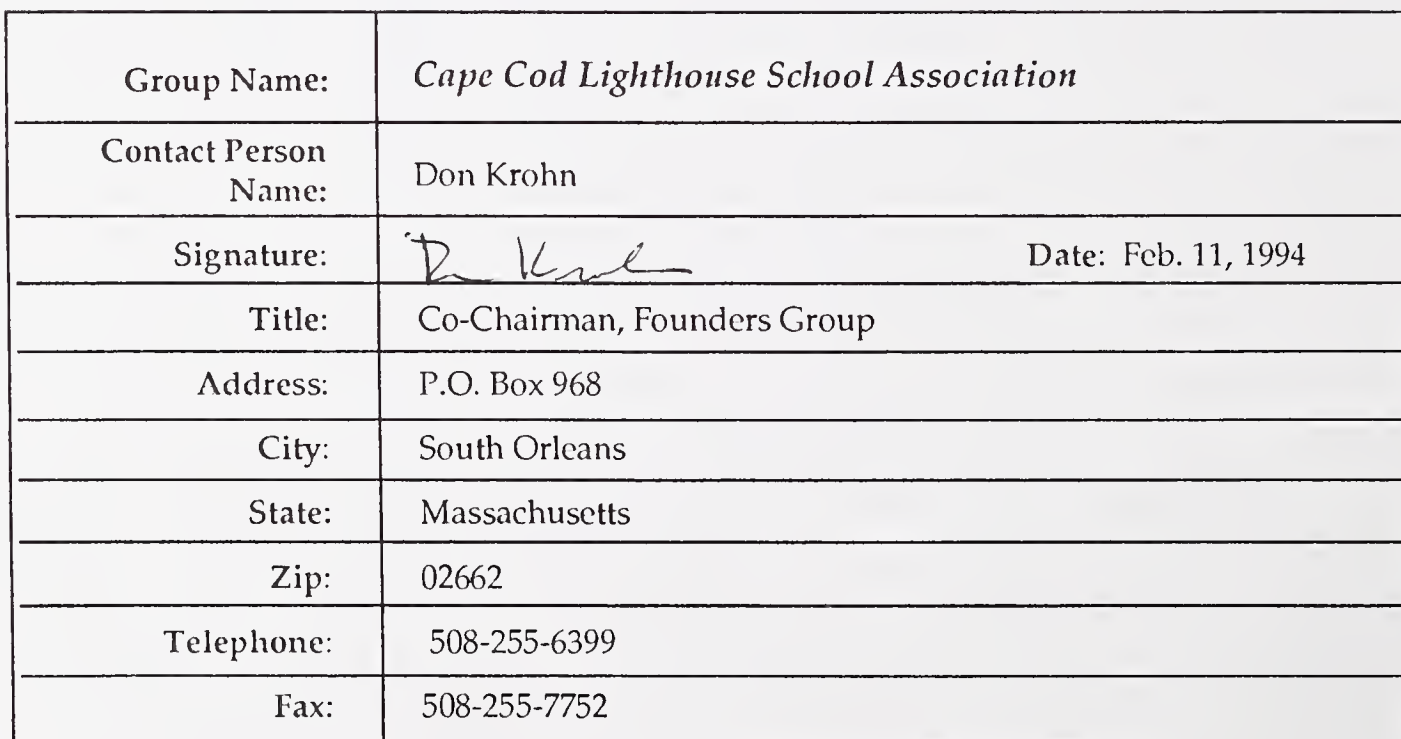 Group Name: Cape Cod Lighthouse School Association
Contact Person
Name: Don Krohn
Signature: Don Krohn Date: Feb. 11, 1994
Title: Co-Chairman, Founders Group
Address: P.O. Box 968
City: South Orleans
State: Massachusetts
Zip: 02662
Telephone: 508-255-6399
Fax: 508-255-7752